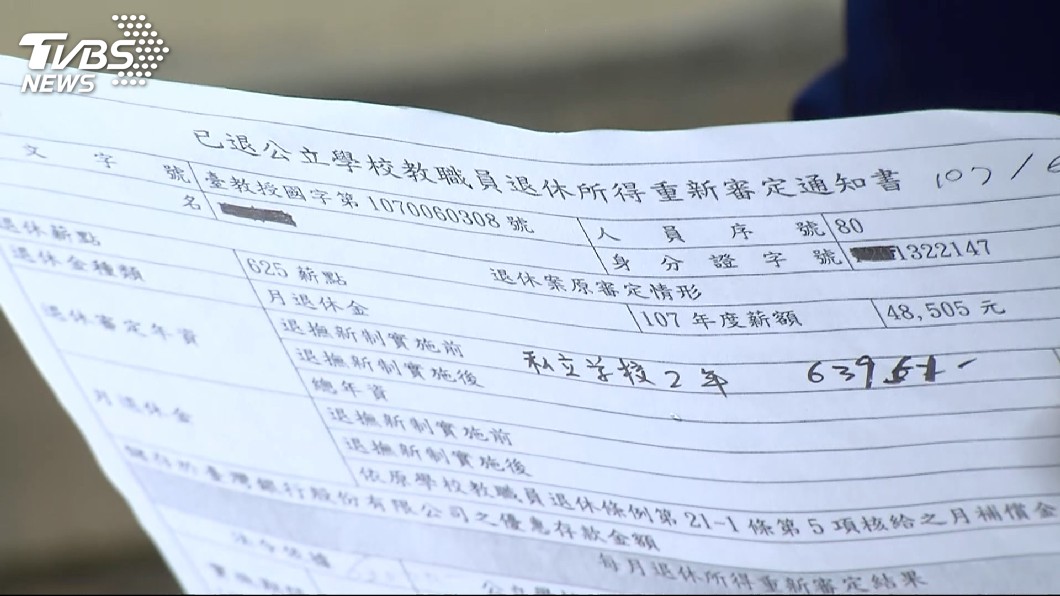 TVBS
NEWS
已退公立學校教職員退休所得重新審定通知書 107/
文字號 臺教授國字第1070060308號 人員序號 80
名 身分證字號 1322147
退休案原審定情形
退休薪點 625薪點 107年度薪額 48,505元
退休金種類 月退休金
退休審定年資 退撫新制實施前
退撫新制實施後 私立学校2年
總年資
月退休金 退撫新制實施前
退撫新制實施後
依原學校教職員退休條例第21-1條第5項核給之月補償金
儲存於臺灣銀行股份有限公司之優惠存款金額
每月退休所得重新審定結果
法令依據